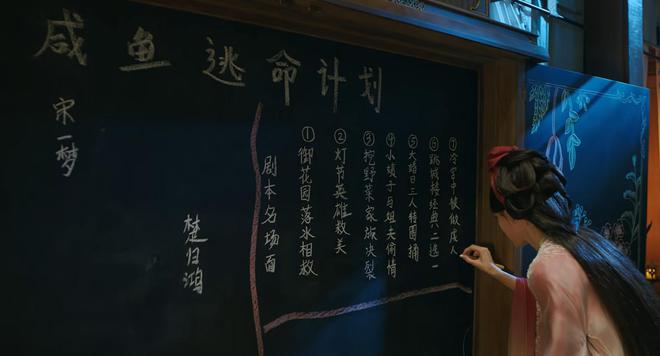 咸鱼逃命计划
宋一梦
楚归鸿
剧本名场面
①御花园落水相救
②灯节英雄救美
③挖野菜家族决裂
④小姨子与姐夫偷情
⑤大婚日三人转圈捅
⑥跳城楼经典二选一
⑦冷宫中被做成人